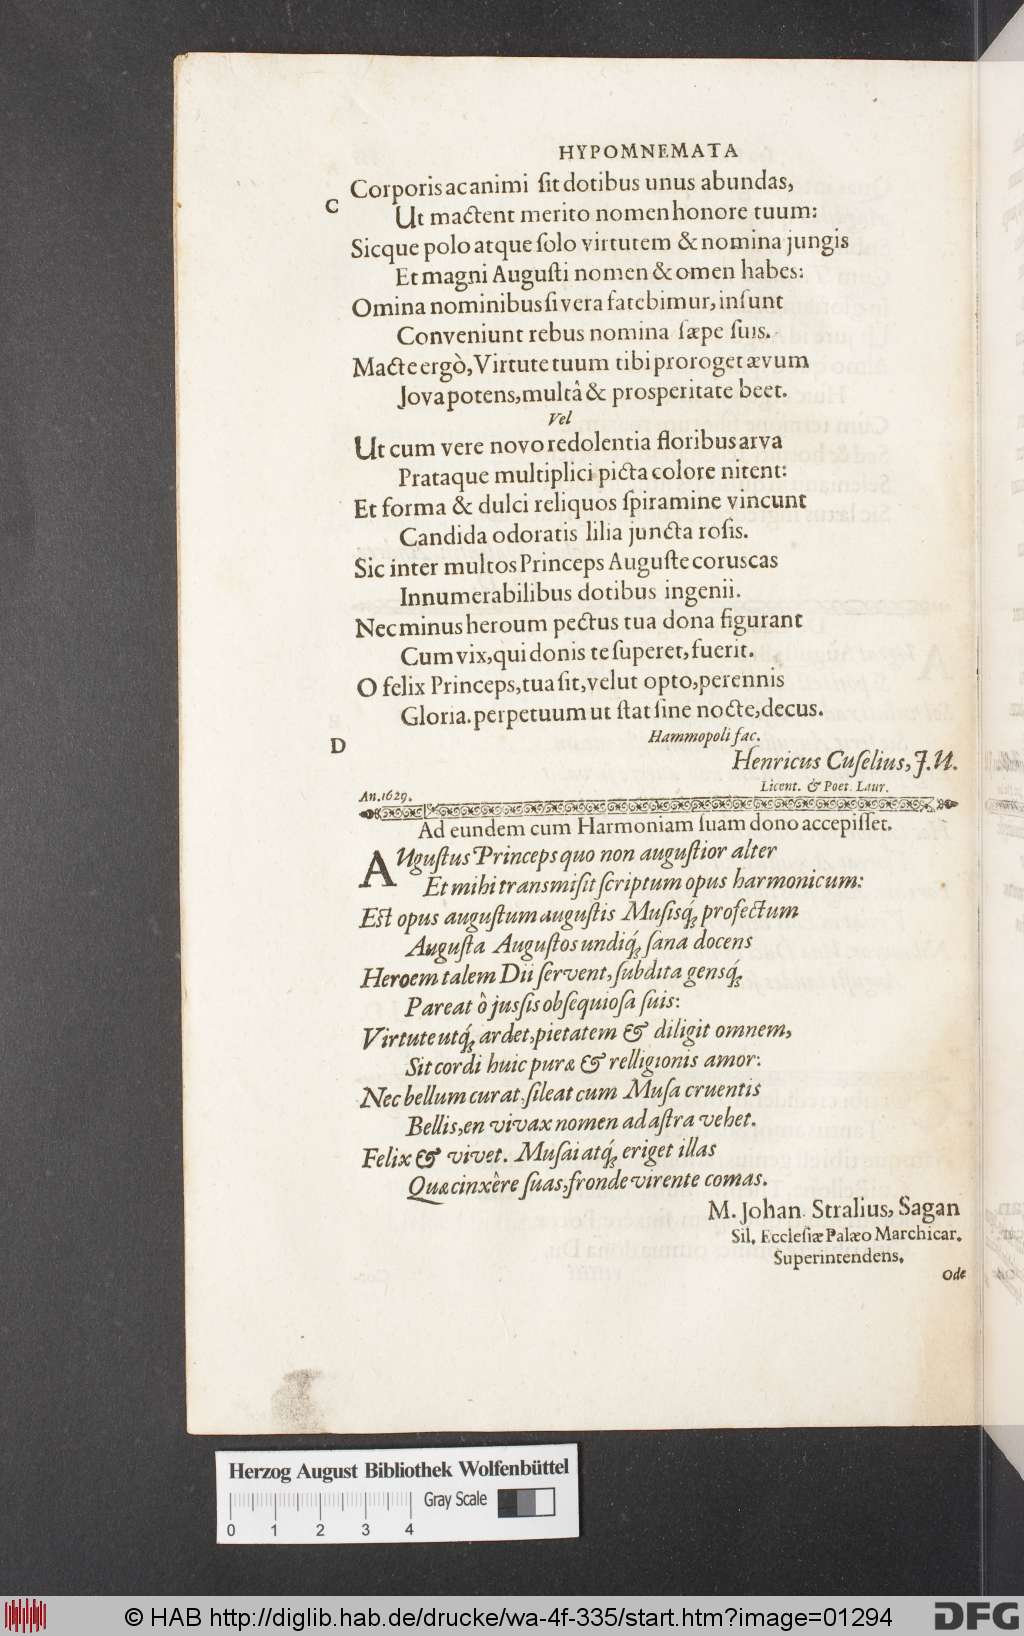 HYPOMNEMATA
Corporis ac animi ſit dotibus unus abundas,
C
Ut mactent merito nomen honore tuum:
Sicque polo atque ſolo virtutem & nomina jungis
Et magni Auguſti nomen & omen habes:
Omina nominibus ſi vera fatebimur, inſunt
Conveniunt rebus nomina ſæpe ſuis.
Macte ergò, Virtute tuum tibi proroget ævum
Jova potens, multâ & prosperitate beet.
Vel
Ut cum vere novo redolentia floribus arva
Prataque multiplici picta colore nitent:
Et forma & dulci reliquos ſpiramine vincunt
Candida odoratis lilia juncta roſis.
Sic inter multos Princeps Auguſte coruscas
Innumerabilibus dotibus ingenii.
Nec minus heroum pectus tua dona figurant
Cum vix, qui donis te ſuperet, fuerit.
O felix Princeps, tua ſit, velut opto, perennis
Gloria. perpetuum ut ſtat ſine nocte, decus.
D
Hammopoli fac.
Henricus Cuſelius, J.U.
Licent. & Poet. Laur.
An. 1629.
Ad eundem cum Harmoniam ſuam dono accepiſſet.
AUguſtus Princeps quo non auguſtior alter
Et mihi transmiſit ſcriptum opus harmonicum:
Est opus auguſtum auguſtis Muſisq́; profectum
Auguſta Auguſtos undiq́; ſana docens
Heroem talem Dii ſervent, ſubdita gensq́;
Pareat ò jusſis obſequioſa ſuis:
Virtute utq́; ardet, pietatem & diligit omnem,
Sit cordi huic puræ & relligionis amor:
Nec bellum curat, ſileat cum Muſa cruentis
Bellis, en vivax nomen ad aſtra vehet.
Felix & vivet. Muſai atq́; eriget illas
Quæ cinxêre ſuas, fronde virente comas.
M. Johan. Stralius, Sagan
Sil. Eccleſiæ Palæo Marchicar.
Superintendens.
Ode
Herzog August Bibliothek Wolfenbüttel
Gray Scale
0 1 2 3 4
© HAB http://diglib.hab.de/drucke/wa-4f-335/start.htm?image=01294
DFG